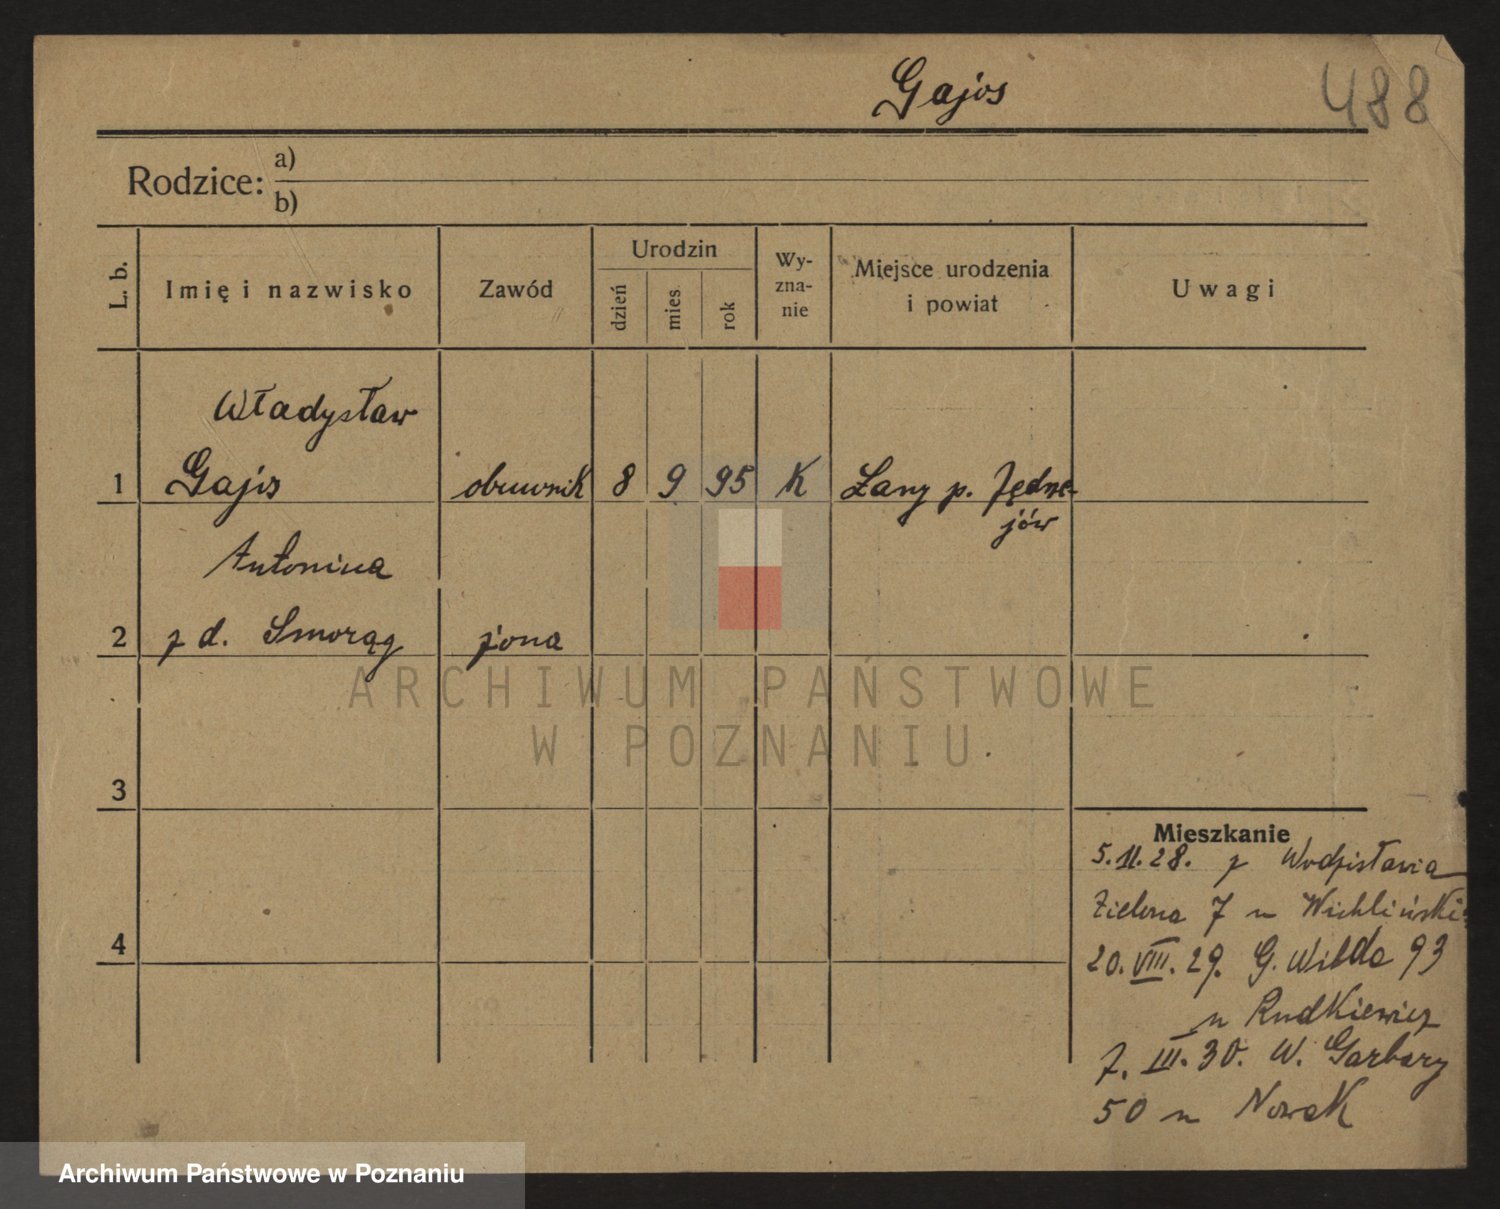 Gajos
488
Rodzice:
a)
b)
L. b.
Imię i nazwisko
Zawód
Urodzin
dzień
mies
rok
Wy-
zna-
nie
Miejsce urodzenia
i powiat
Uwagi
Władysław
1 Gajos obuwnik 8 9 95 K Łany p. Jędrze-
jów
Antonina
2 z d. Smorąg żona
3
4
Mieszkanie
5.11.28. z Wodzisławia
Zielona 7 u Wichliński
20.VIII.29. G. Wilda 93
u Rudkiewicz
7. III. 30. W. Garbary
50 u Nowak
ARCHIWUM PAŃSTWOWE
W POZNANIU
Archiwum Państwowe w Poznaniu